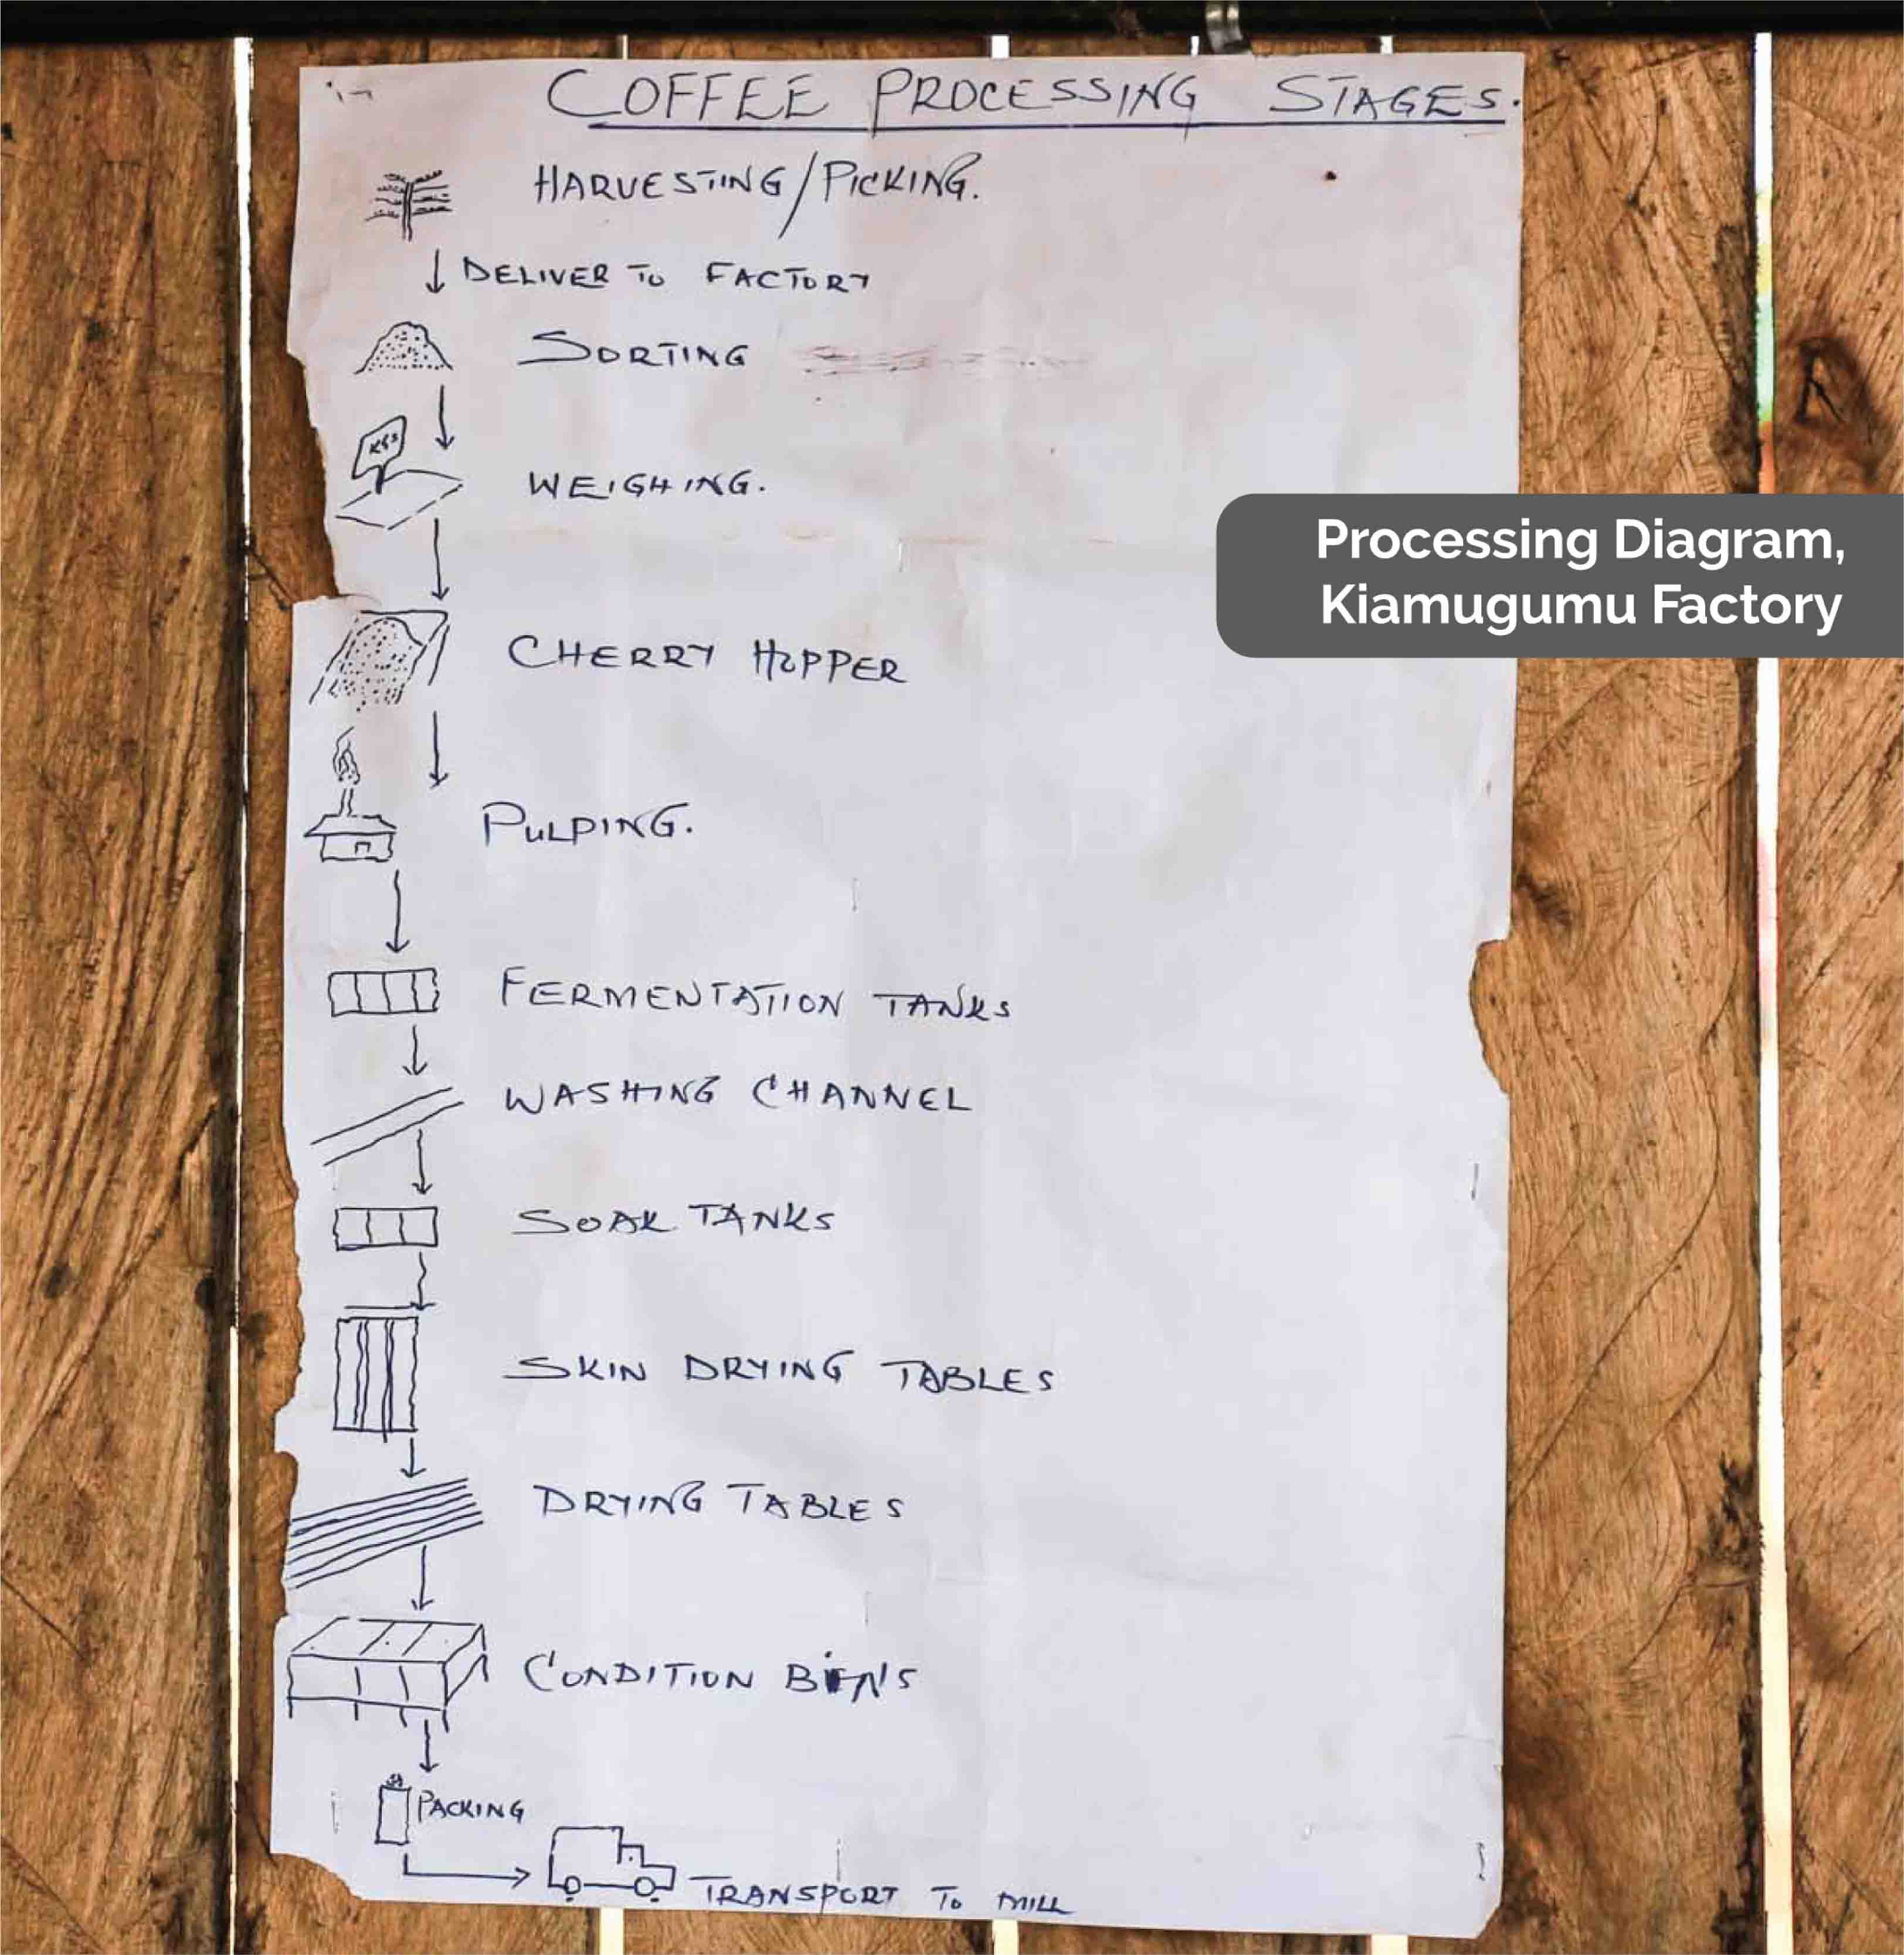 COFFEE PROCESSING STAGES.
HARVESTING/PICKING.
DELIVER TO FACTORY
SORTING
KGS
WEIGHING.
Processing Diagram,
Kiamugumu Factory
CHERRY HOPPER
PULPING.
FERMENTATION TANKS
WASHING CHANNEL
SOAK TANKS
SKIN DRYING TABLES
DRYING TABLES
CONDITION BINS
PACKING
TRANSPORT TO MILL